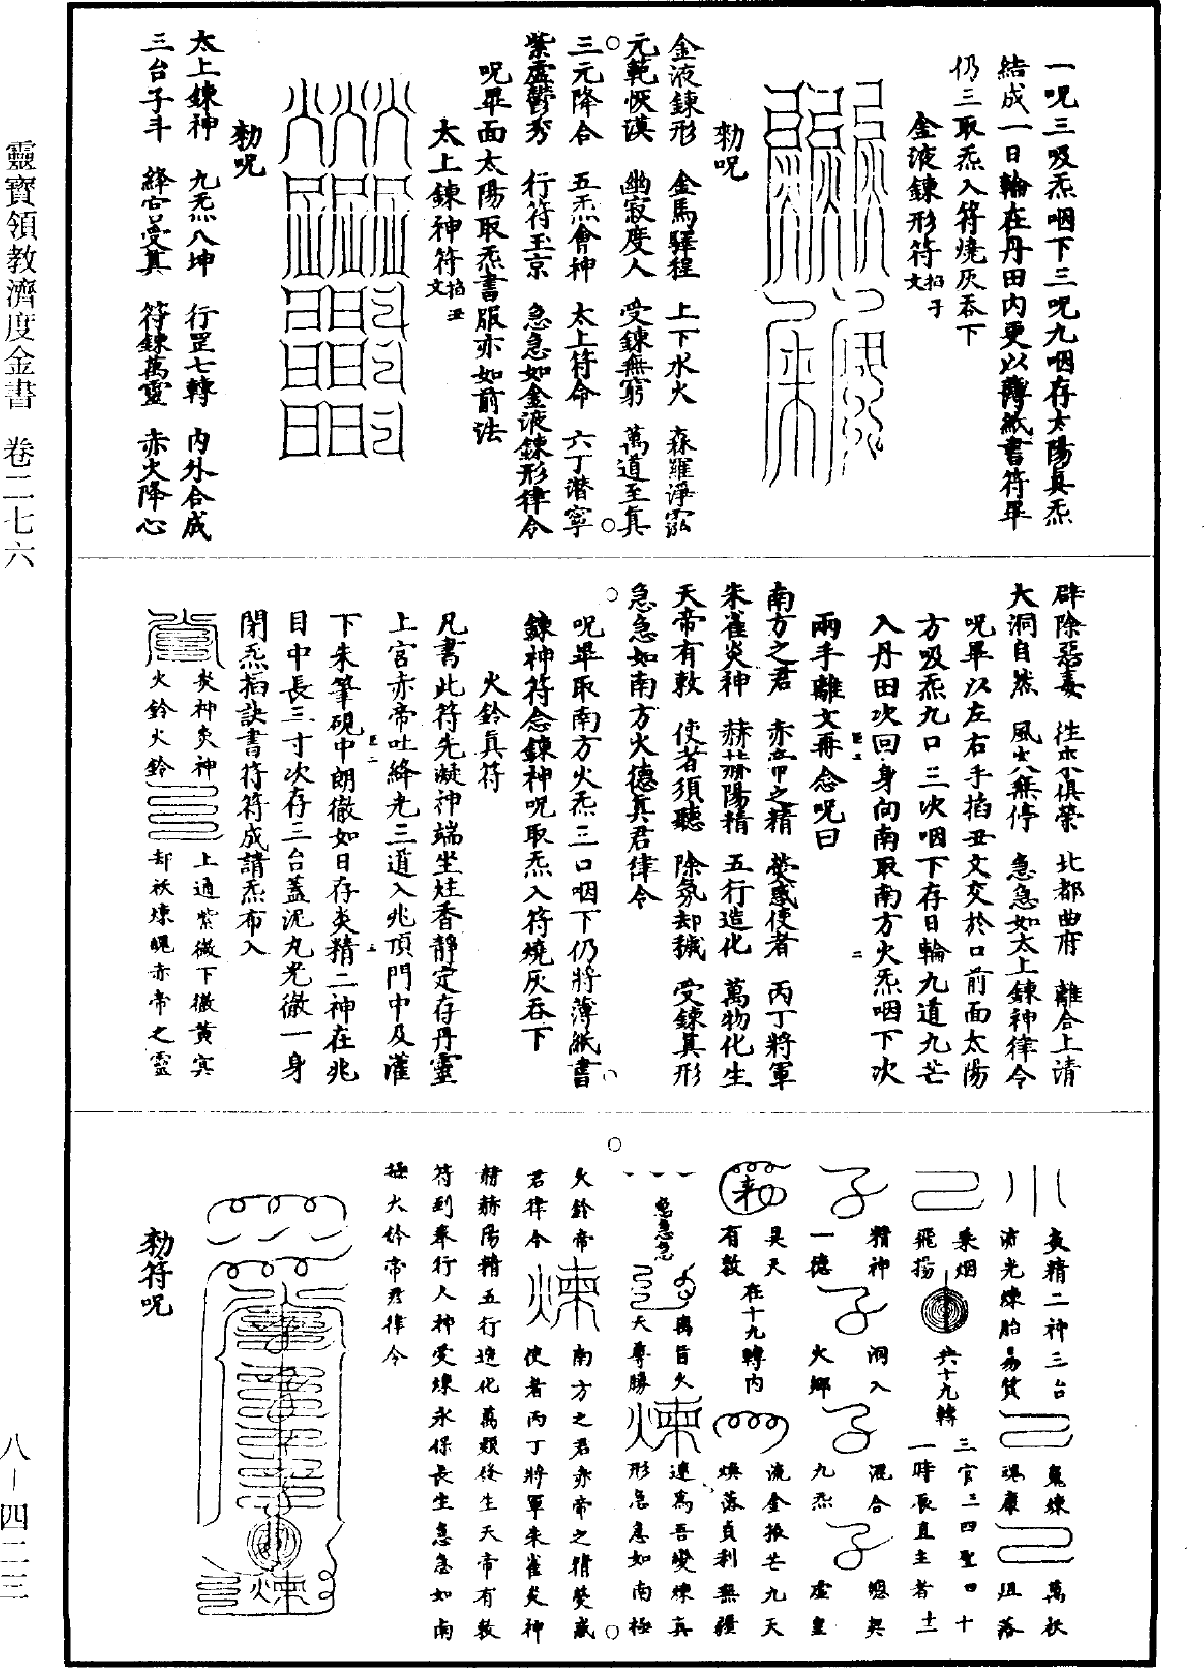 一呪三吸炁咽下三呪九咽存太陽真炁
結成一日輪在丹田内更以薄紙書符畢
仍三取炁入符燒灰吞下
金液鍊形符掐子文
勑呪
金液鍊形　金馬驛程　上下水火　森羅淨泓
元範恢漠　幽寂度人　受鍊無窮　萬道至真
三元降合　五炁會神　太上符命　六丁潜寧
紫虛欝秀　行符玉京　急急如金液鍊形律令
呪畢面太陽取炁書服亦如前法
太上鍊神符掐丑文
勑呪
太上鍊神　九炁八坤　行罡七轉　内外合成
三台子斗　絳宫受真　符鍊萬靈　赤火降心
辟除惡毒　往來俱榮　北都曲府　離合上清
大洞自然　風火無停　急急如太上鍊神律令
呪畢以左右手掐丑文交於口前面太陽
方吸炁九口三次咽下存日輪九道九芒
入丹田次回身向南取南方火炁咽下次
兩手離文再念呪曰
南方之君　赤帝之精　熒惑使者　丙丁將軍
朱雀炎神　赫赫陽精　五行造化　萬物化生
天帝有敕　使者須聽　除氛却穢　受鍊其形
急急如南方火德真君律令
呪畢取南方火炁三口咽下仍將薄紙書
鍊神符念鍊神呪取炁入符燒灰吞下
火鈴真符
凡書此符先凝神端坐炷香靜定存丹靈
上宫赤帝吐絳光三道入兆頂門中及灌
下朱筆硯中朗徹如日存炎精二神在兆
目中長三寸次存三台蓋泥丸光徹一身
閉炁掐訣書符符成請炁布入
炎神炎神
火鈴火鈴
上通紫微下徹黃冥
却袄煉魂赤帝之靈
炎精二神三台
流光煉胎易質
鬼煉
魂康
萬袄
俎落
乗烟
飛揚
共十九轉
三官三四聖曰十
一時辰直主者十二
精神
一德
洞入
火鄉
混合
九炁
虛皇
昊天
有敕
在十九轉内
流金振芒九天
煥落貞利無疆
急急急
天尊勝
速爲吾變煉真
形急急如南極
火鈴帝
君律令
南方之君赤帝之精熒惑
使者丙丁將軍朱雀炎神
赫赫陽精五行造化萬類後生天帝有敕
符到奉行人神受煉永保長生急急如南
極火鈴帝君律令
勑符呪
靈寶領教濟度金書　卷二七六
八—四二三